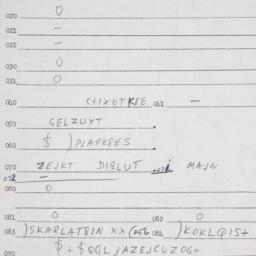 020 O
021 -
022 -
030 O
031 O
040 CHIXOTKSE 041 -
050 GELZUXT
060 $ )PJAFKSES
070 ZEJKT DIBLUT 071 MAJN
072 -
080 O
081 O 082 O
083 )SKARLATBIN XX (256 084 )KOKLQIS+
090 $+$QGL)AZEJCUZOG+